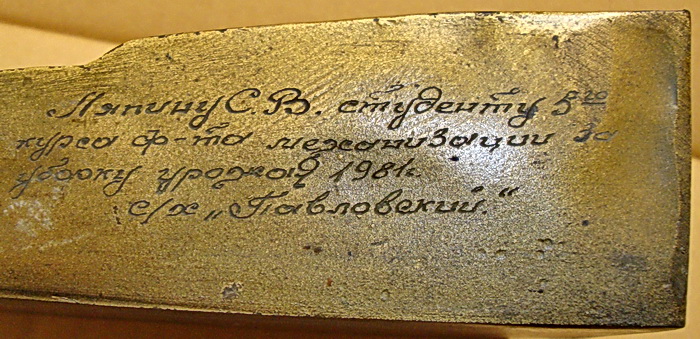 Ляпину С.В. студенту 5го
курса ф-та механизации за
уборку урожая 1981г.
с/х „Павловский.“